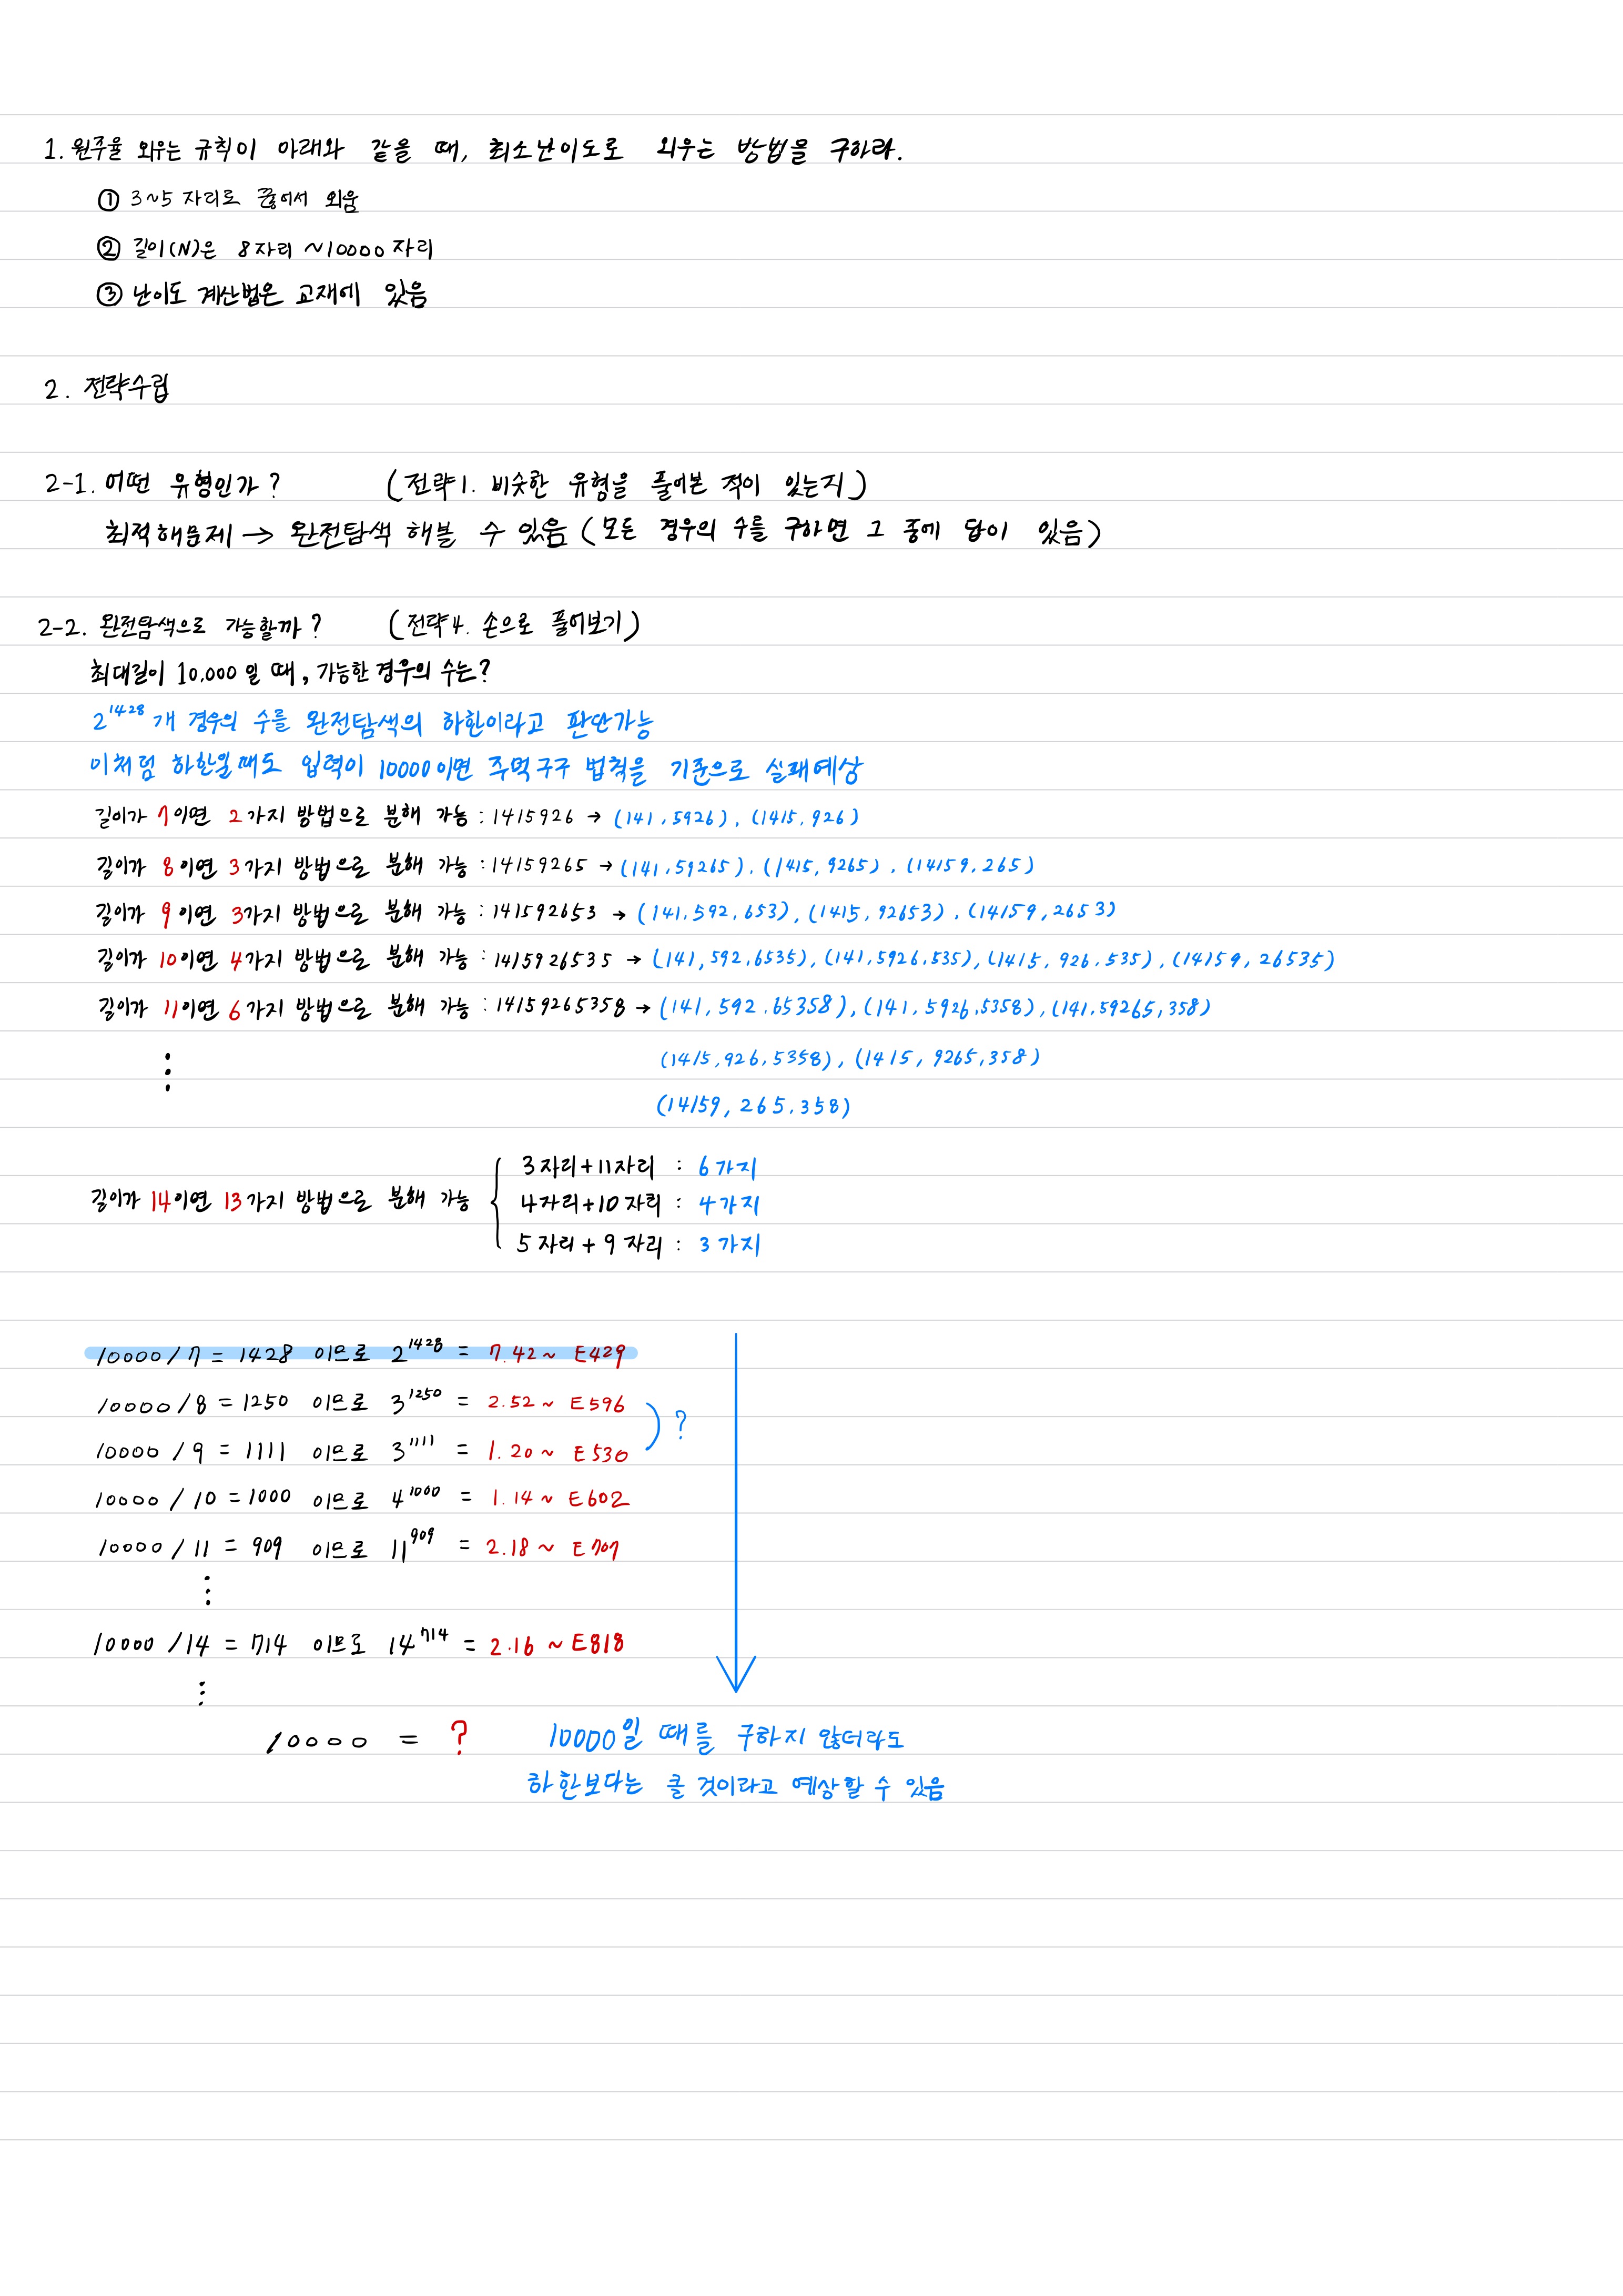 1. 원주율 외우는 규칙이 아래와 같을 때, 최소난이도로 외우는 방법을 구하라.
① 3~5 자리로 끊어서 외움
② 길이(N)은 8자리 ~10000 자리
③ 난이도 계산법은 교재에 있음
2. 전략수립
2-1. 어떤 유형인가? (전략1. 비슷한 유형을 풀어본 적이 있는지)
최적해문제 → 완전탐색 해볼 수 있음 (모든 경우의 수를 구하면 그 중에 답이 있음)
2-2. 완전탐색으로 가능할까? (전략4. 손으로 풀어보기)
최대길이 10,000 일 때, 가능한 경우의 수는?
2^1428 개 경우의 수를 완전탐색의 하한이라고 판단가능
이처럼 하한일때도 입력이 10000이면 주먹구구 법칙을 기준으로 실패예상
길이가 7이면 2가지 방법으로 분해 가능 : 1415926 → (141,5926), (1415,926)
길이가 8이면 3가지 방법으로 분해 가능 : 14159265 → (141,59265), (1415,9265), (14159,265)
길이가 9이면 3가지 방법으로 분해 가능 : 141592653 → (141,592,653), (1415,92653), (14159,2653)
길이가 10이면 4가지 방법으로 분해 가능 : 1415926535 → (141,592,6535), (141,5926,535), (1415,926,535), (14159,26535)
길이가 11이면 6가지 방법으로 분해 가능 : 14159265358 → (141,592,65358), (141,5926,5358), (141,59265,358)
(1415,926,5358), (1415,9265,358)
(14159,265,358)
3자리+11자리 : 6가지
길이가 14이면 13가지 방법으로 분해 가능 4자리+10자리 : 4가지
5자리+9자리 : 3가지
10000/7 = 1428 이므로 2^1428 = 7.42~ E429
10000/8 = 1250 이므로 3^1250 = 2.52~ E596
) ?
10000/9 = 1111 이므로 3^1111 = 1.20~ E530
10000/10 = 1000 이므로 4^1000 = 1.14~ E602
10000/11 = 909 이므로 11^909 = 2.18~ E707
10000/14 = 714 이므로 14^714 = 2.16~ E818
10000 = ? 10000일 때를 구하지 않더라도
하한보다는 클 것이라고 예상할 수 있음